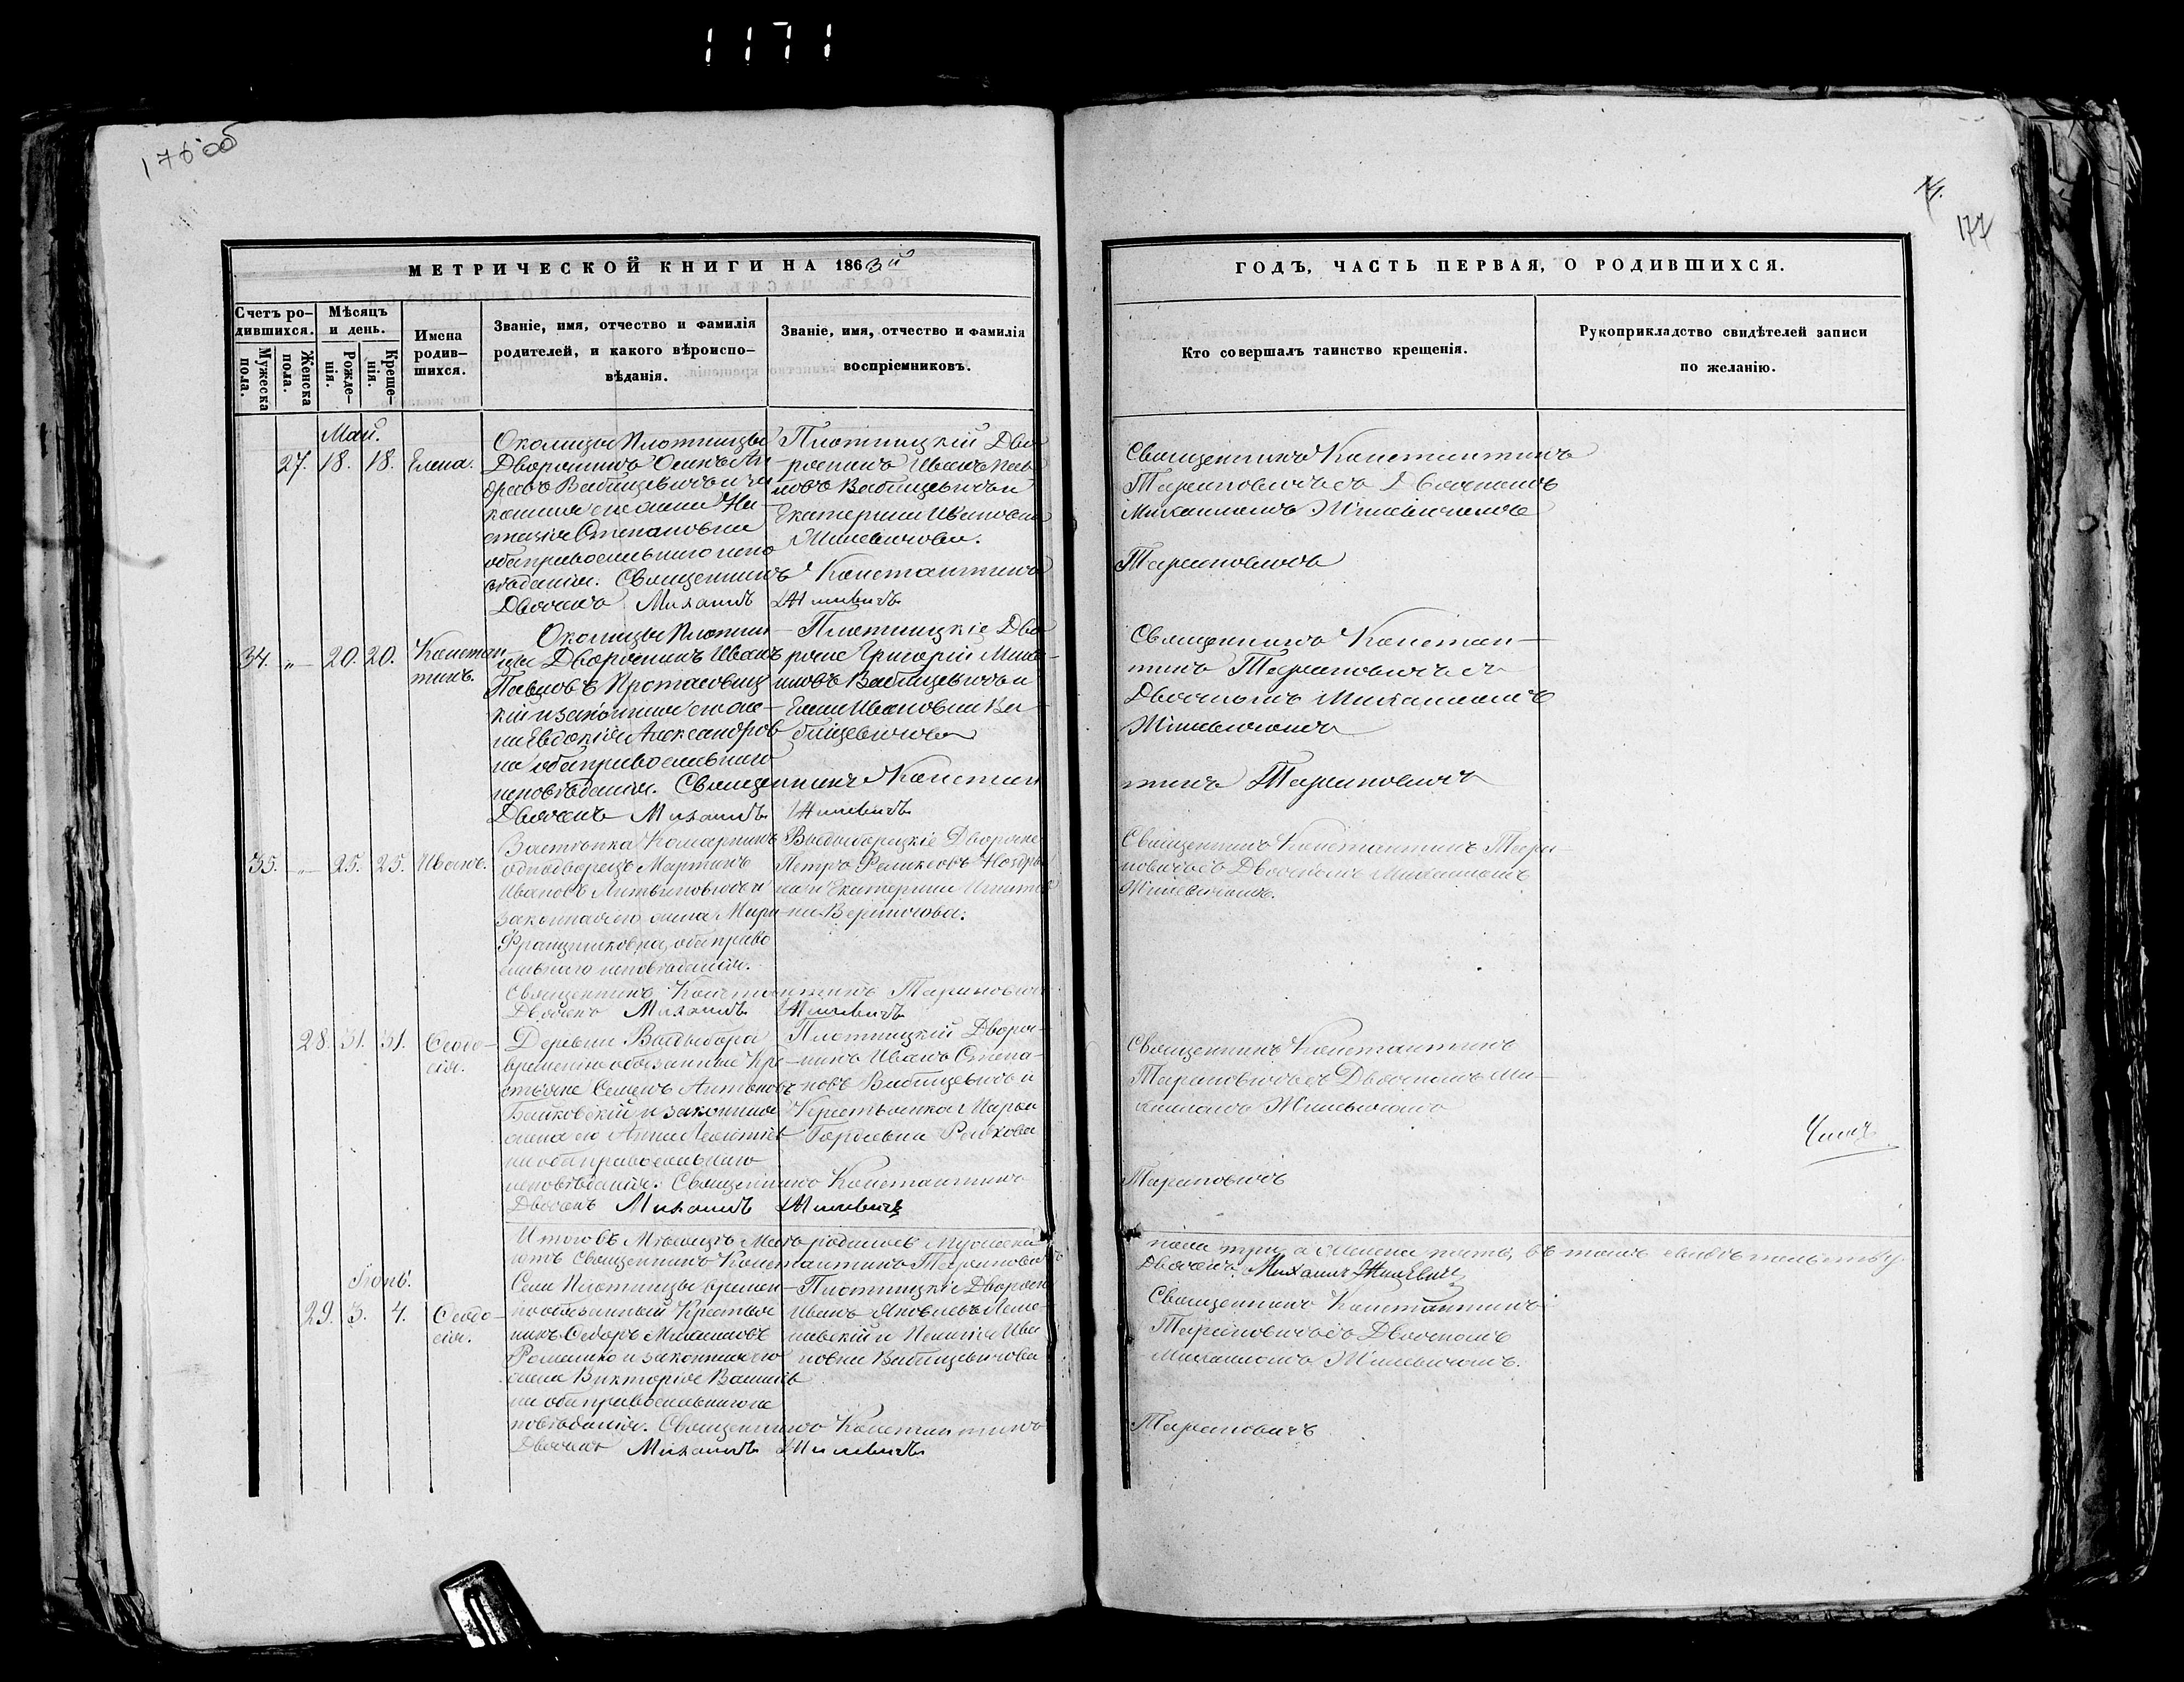 1171
176 об
177
МЕТРИЧЕСКОЙ КНИГИ НА 1863й
ГОДЪ, ЧАСТЬ ПЕРВАЯ, О РОДИВШИХСЯ.
Счетъ ро-
дившихся.
Мужеска
пола.
Женска
пола.
Мѣсяцъ
и день.
Рожде-
нія.
Креще-
нія.
Имена
родив-
шихся.
Званіе, имя, отчество и фамилія
родителей, и какого вѣроиспо-
вѣданія.
Званіе, имя, отчество и фамилія
воспріемниковъ.
Кто совершалъ таинство крещенія.
Рукоприкладство свидѣтелей записи
по желанію.
Май.
27. 18. 18. Елена.
Околицы Плотницы
Дворянинъ Осипъ Ан
дреевъ Вабищевичъ и за
конная его жена На
стасія Степановна
оба православнаго испо
вѣданія. Священникъ Константинъ
Діаконъ Михаилъ Жилевичъ
Плотницкій Дво-
рянинъ Иванъ Пав
ловъ Вабищевичъ и
Екатерина Ивановна
Жилевичова.
Священникъ Константинъ
Тарановичъ съ Діакономъ
Михаиломъ Жилевичемъ
Тарановичъ
34. „ 20. 20. Констан
тинъ.
Околицы Плотни-
цы Дворянинъ Иванъ
Павловъ Протасовиц
кій и законная его же-
на Евдокія Александров
на оба православнаго
исповѣданія. Священникъ Констан
Діаконъ Михаилъ Жилевичъ
Плотницкіе Дво
ряне Григорій Михаи-
ловъ Вабищевичъ и
Елена Ивановна Ва
бищевичова
Священникъ Констан-
тинъ Тарановичъ съ
Діакономъ Михаиломъ
Жилевичемъ
тинъ Тарановичъ
35. „ 25. 25. Иванъ.
Застѣнка Комарникъ
однодворецъ Мартинъ
Ивановъ Литвиновичъ и
законная его жена Мари
Францишковна, оба право
славнаго исповѣданія.
Священникъ Константинъ Тарановичъ
Діаконъ Михаилъ Жилевичъ
Петръ Феликсовъ
Екатерина
Священникъ Константинъ Тара-
новичъ съ Діакономъ Михаиломъ
Жилевичемъ.
28. 31. 31. Феодо-
сія.
Деревни
временно обязанные Кре-
стьяне Семенъ Антоновъ
и законная
жена его Анна Леонтіев
на оба православнаго
исповѣданія. Священникъ Константинъ
Діаконъ Михаилъ Жилевичъ
Плотницкій Дворя-
нинъ Иванъ Степа-
новъ Вабищевичъ и
Крестьянка
Гордѣевна
Священникъ Константинъ
Тарановичъ съ Діакономъ Ми-
хаиломъ Жилевичемъ
Тарановичъ
Итого въ Мѣсяцѣ Маѣ родилось Мужеска
пола три, а Женска пять, въ томъ свидѣтельству
ютъ Священникъ Константинъ Тарановичъ
Діаконъ Михаилъ Жилевичъ
Іюнь.
29. 3. 4. Феодо-
сія.
Села Плотницы времен-
но обязанный Крестья
нинъ Федоръ Михайловъ
Романко и законная его
жена Викторія Василіев
на оба православнаго ис
повѣданія. Священникъ Константинъ
Діаконъ Михаилъ Жилевичъ
Плотницкіе Дворян
Иванъ Яковлевъ
Ива
новна Вабищевичова
Священникъ Константинъ
Тарановичъ съ Діакономъ
Михаиломъ Жилевичемъ.
Тарановичъ